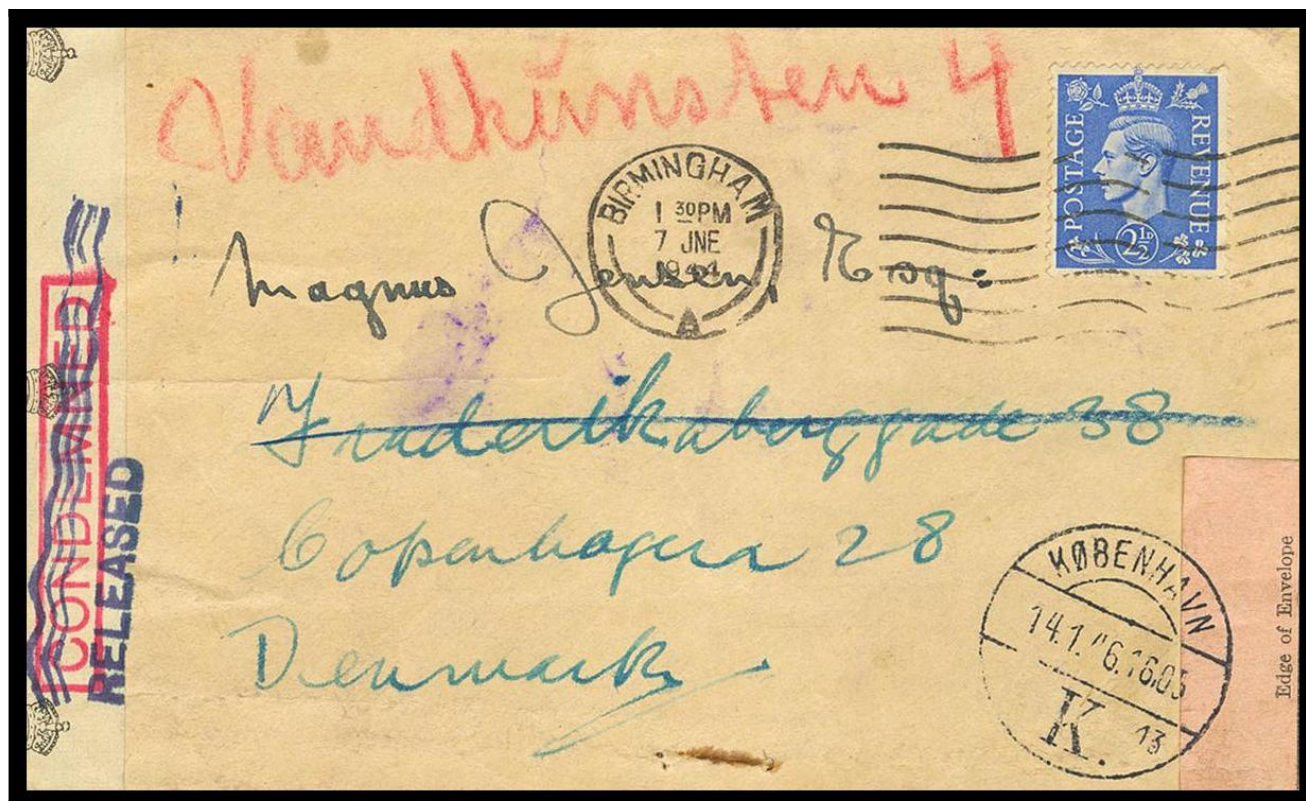 Vandkunsten 4
BIRMINGHAM
1 30PM
7 JNE
1944
A
POSTAGE REVENUE
2½D
Magnus Jensen, Esq.
Frederiksberggade 38
Copenhagen 28
Denmark
CONDEMNED
RELEASED
KØBENHAVN
14.1.46.16.05
K. 13
Edge of Envelope